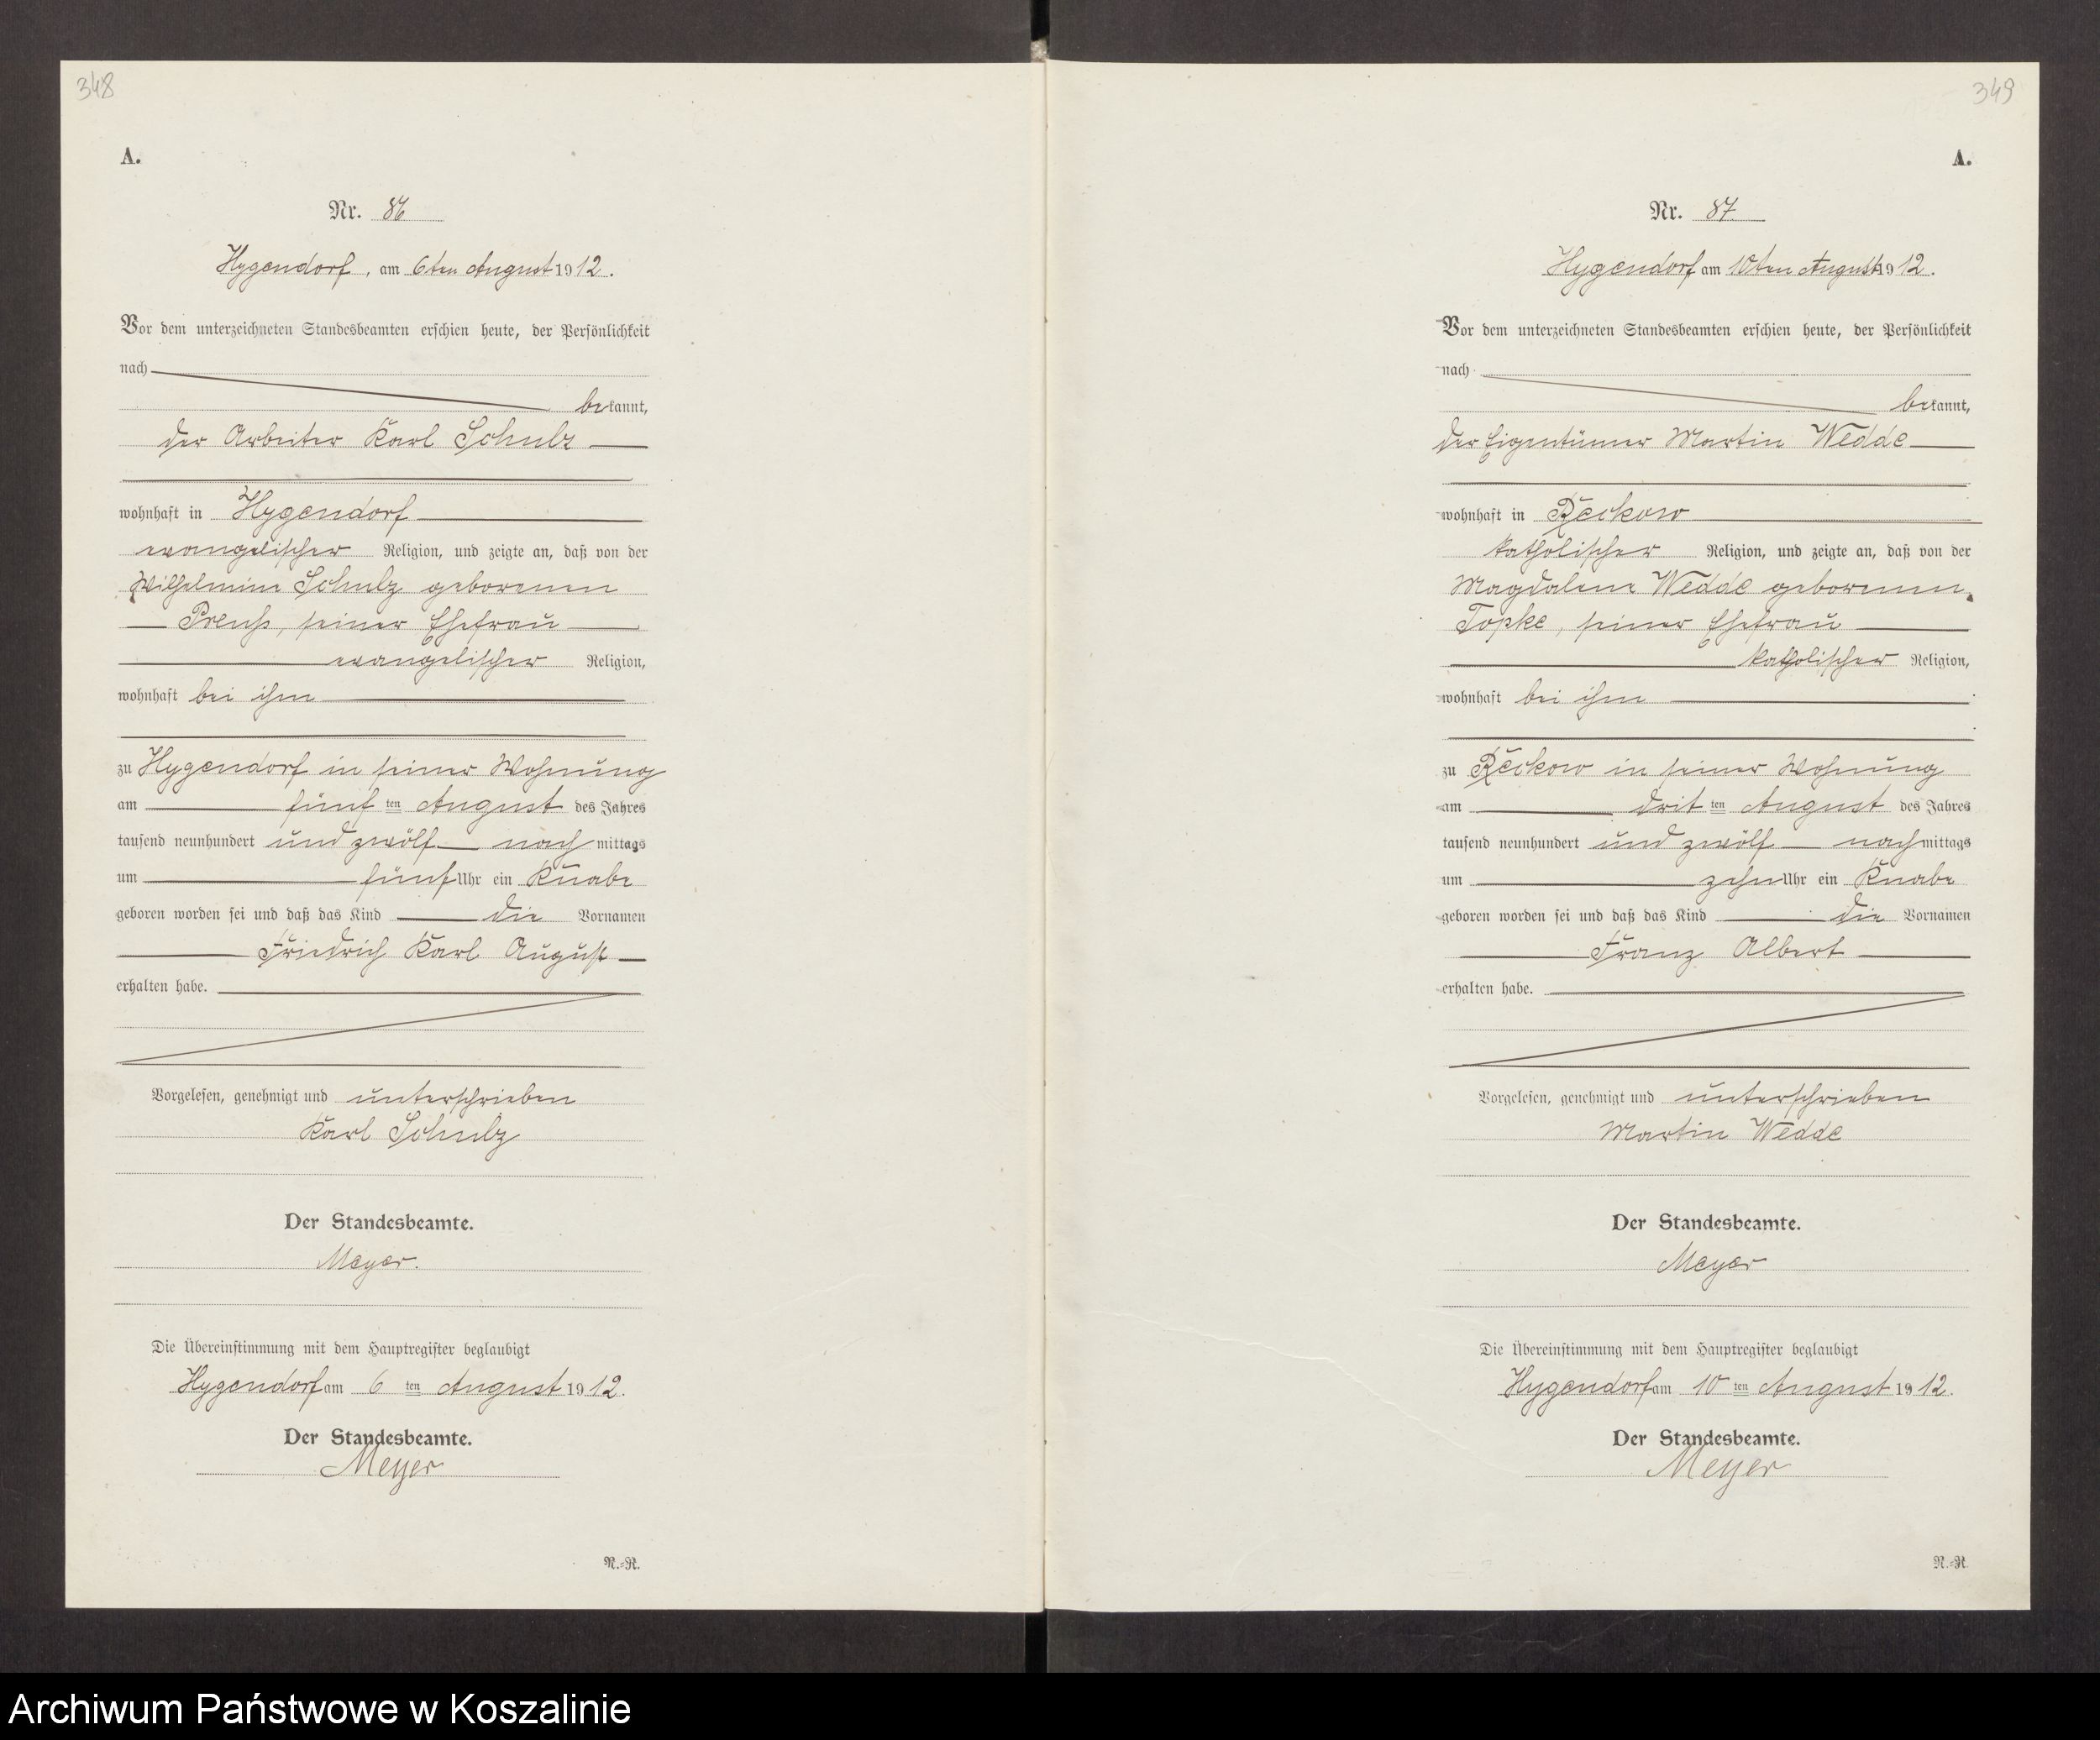 348
A.
Nr. 86
Hygendorf, am 6ten August 1912.
Vor dem unterzeichneten Standesbeamten erschien heute, der Persönlichkeit
nach
bekannt,
der Arbeiter Karl Schulz
wohnhaft in Hygendorf
evangelischer Religion, und zeigte an, daß von der
Wilhelmine Schulz geborenen
Preuß, seiner Ehefrau
evangelischer Religion,
wohnhaft bei ihm
zu Hygendorf in seiner Wohnung
am fünf ten August des Jahres
tausend neunhundert und zwölf nach mittags
um fünf Uhr ein Knabe
geboren worden sei und daß das Kind die Vornamen
Friedrich Karl August
erhalten habe.
Vorgelesen, genehmigt und unterschrieben
Karl Schulz
Der Standesbeamte.
Meyer.
Die Übereinstimmung mit dem Hauptregister beglaubigt
Hygendorf am 6 ten August 1912.
Der Standesbeamte.
Meyer
N.-R.
349
A.
Nr. 87
Hygendorf am 10ten August 1912.
Vor dem unterzeichneten Standesbeamten erschien heute, der Persönlichkeit
nach
bekannt,
der Eigentümer Martin Wedde
wohnhaft in Reckow
katholischer Religion, und zeigte an, daß von der
Magdalene Wedde geborenen
Topke, seiner Ehefrau
katholischer Religion,
wohnhaft bei ihm
zu Reckow in seiner Wohnung
am drit ten August des Jahres
tausend neunhundert und zwölf nach mittags
um zehn Uhr ein Knabe
geboren worden sei und daß das Kind die Vornamen
Franz Albert
erhalten habe.
Vorgelesen, genehmigt und unterschrieben
Martin Wedde
Der Standesbeamte.
Meyer
Die Übereinstimmung mit dem Hauptregister beglaubigt
Hygendorf am 10 ten August 1912.
Der Standesbeamte.
Meyer
N.-R.
Archiwum Państwowe w Koszalinie